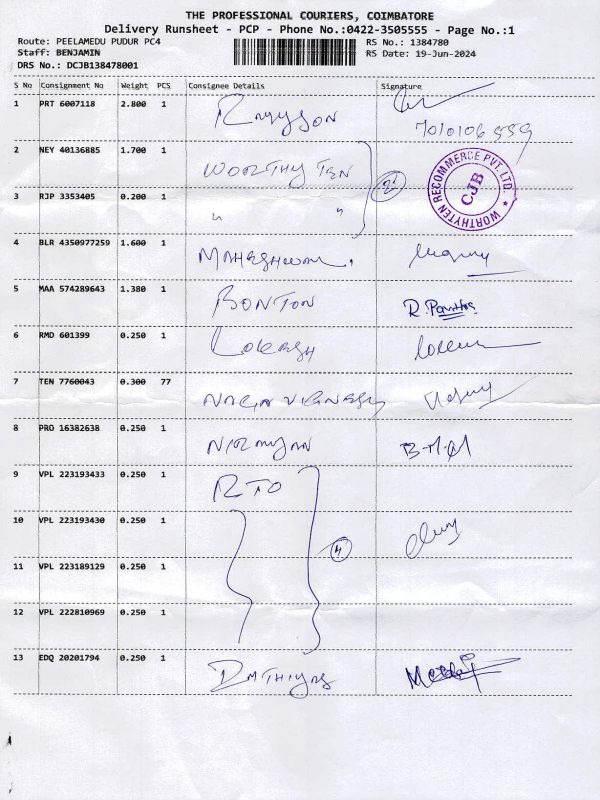 THE PROFESSIONAL COURIERS, COIMBATORE
Delivery Runsheet - PCP - Phone No.:0422-3505555 - Page No.:1
Route: PEELAMEDU PUDUR PC4
RS No.: 1384780
Staff: BENJAMIN
RS Date: 19-Jun-2024
DRS No.: DCJB138478001
S No Consignment No Weight PCS Consignee Details Signature
1 PRT 6007118 2.800 1
7010106559
2 NEY 40136885 1.700 1 WORTHY TEN
2
WORTHYTEN RECOMMERCE PVT. LTD.
CJB
3 RJP 3353405 0.200 1 " "
4 BLR 4350977259 1.600 1
5 MAA 574289643 1.380 1 BONTON
6 RMD 601399 0.250 1
7 TEN 7760043 0.300 77
8 PRO 16382638 0.250 1
9 VPL 223193433 0.250 1 RTO
10 VPL 223193430 0.250 1
4
11 VPL 223189129 0.250 1
12 VPL 222810969 0.250 1
13 EDQ 20201794 0.250 1